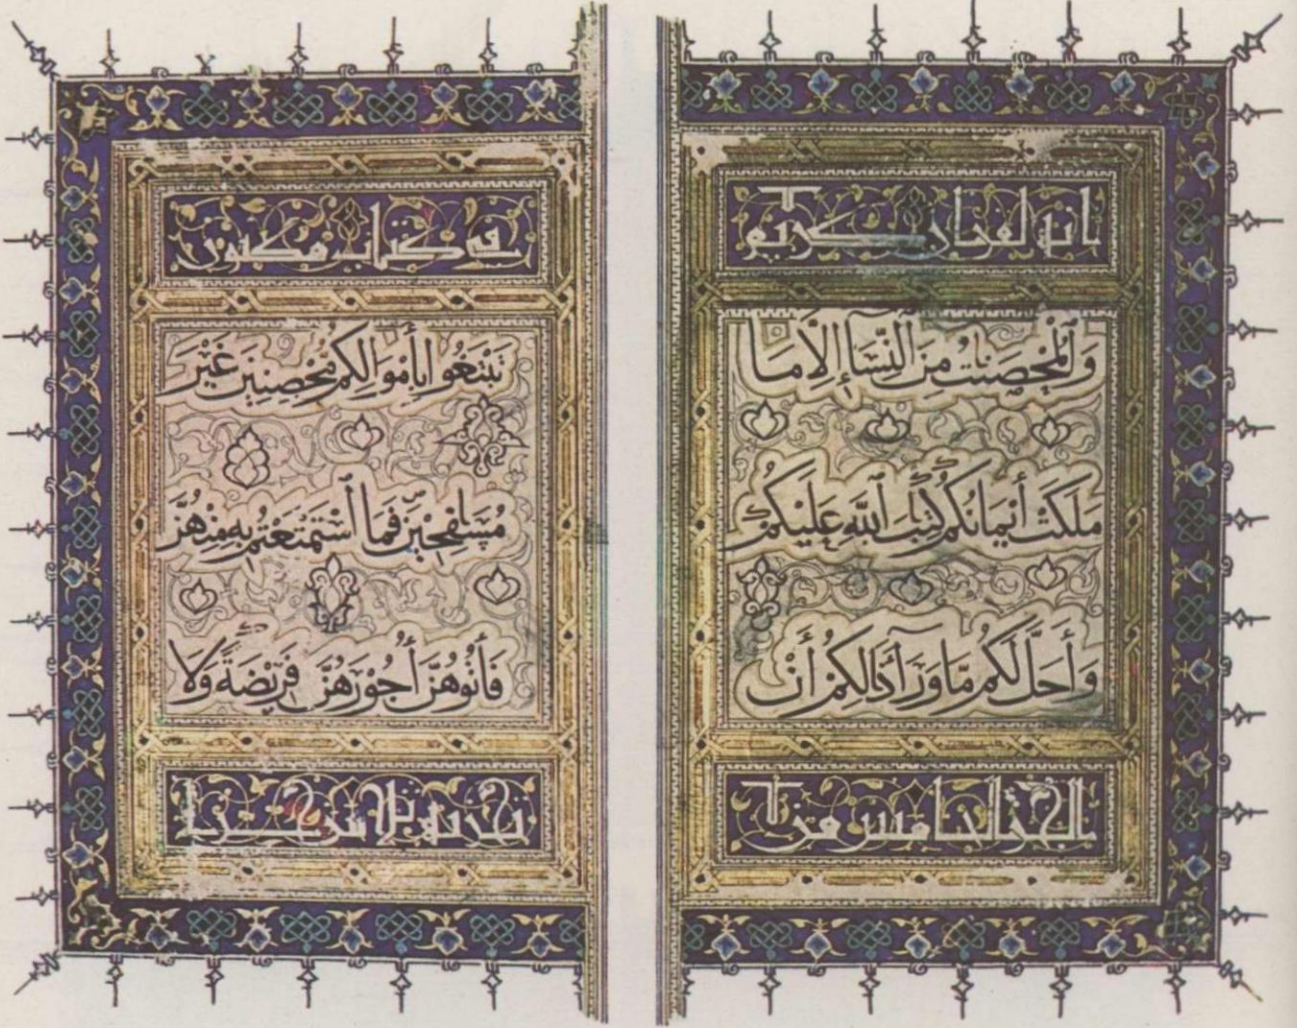 انه لقران كريم
وَٱلْمُحْصَنٰتُ مِنَ ٱلنِّسَآءِ إِلَّا مَا
مَلَكَتْ أَيْمَانُكُمْ كِتٰبَ ٱللَّهِ عَلَيْكُمْ
وَأُحِلَّ لَكُم مَّا وَرَآءَ ذَالِكُمْ أَنْ
الجزء الخامس من
في كتاب مكنون
تَبْتَغُوا بِأَمْوَالِكُم مُّحْصِنِينَ غَيْرَ
مُسَافِحِينَ فَمَا ٱسْتَمْتَعْتُم بِهِ مِنْهُنَّ
فَآتُوهُنَّ أُجُورَهُنَّ فَرِيضَةً وَلَا
تجزئة ثلاثين جزءا